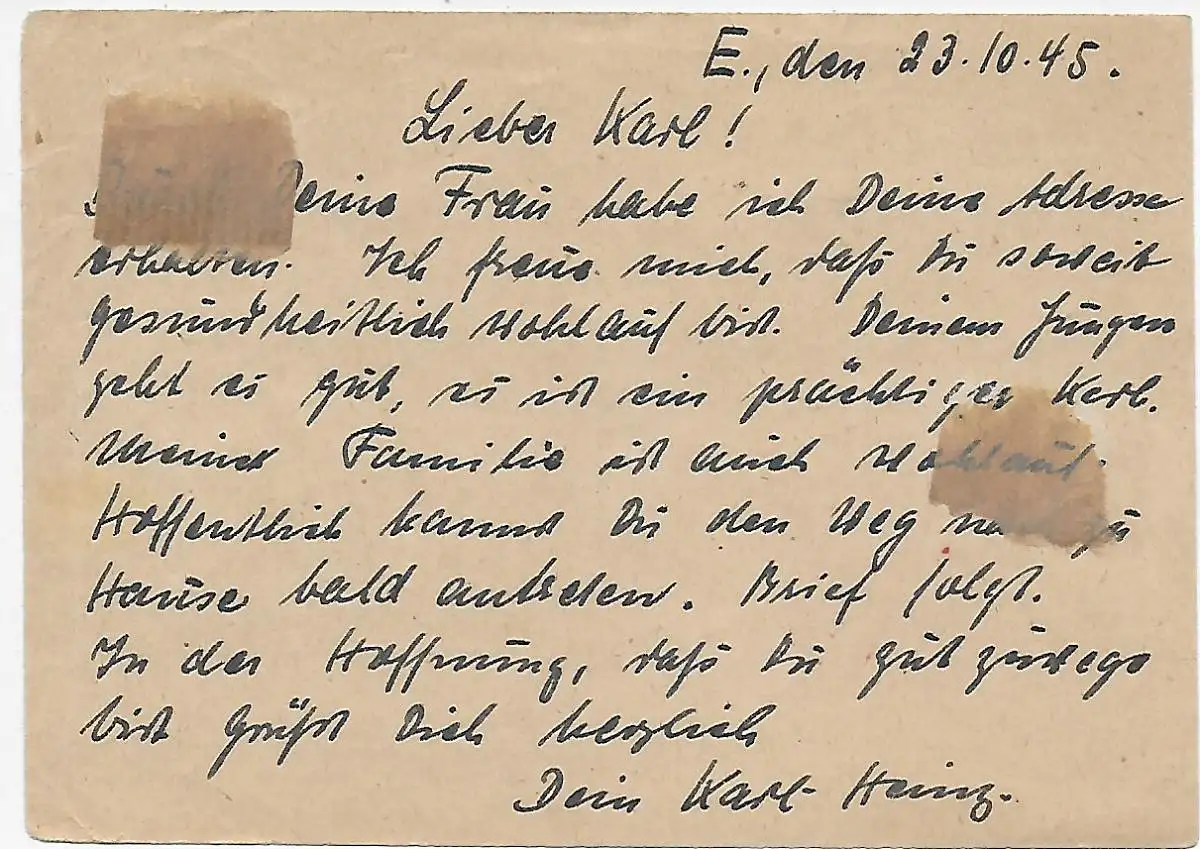 E., den 23.10.45.
Lieber Karl!
Durch Deine Frau habe ich Deine Adresse
erhalten. Ich freue mich, daß Du soweit
gesundheitlich wohlauf bist. Deinem Jungen
geht es gut, es ist ein prächtiger Kerl.
Meine Familie ist auch wohlauf.
Hoffentlich kannst Du den Weg nach zu
Hause bald antreten. Brief folgt.
In der Hoffnung, daß Du gut zuwege
bist grüßt Dich herzlich
Dein Karl-Heinz.